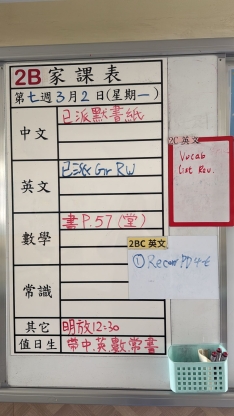 2B 家課表
第七週3月2日(星期一)
中文
已派默書紙
英文
已派 Gr RW
數學
書P.57(堂)
常識
其它
明放12:30
值日生
帶中.英.數.常書
2C 英文
Vocab
List Rev.
2BC 英文
①